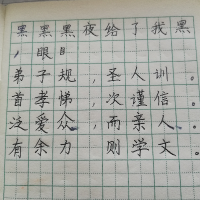 黑黑黑夜给了我黑
，眼目
弟子规，圣人训。
首孝悌，次谨信。
泛爱众，而亲人。
有余力，则学文。